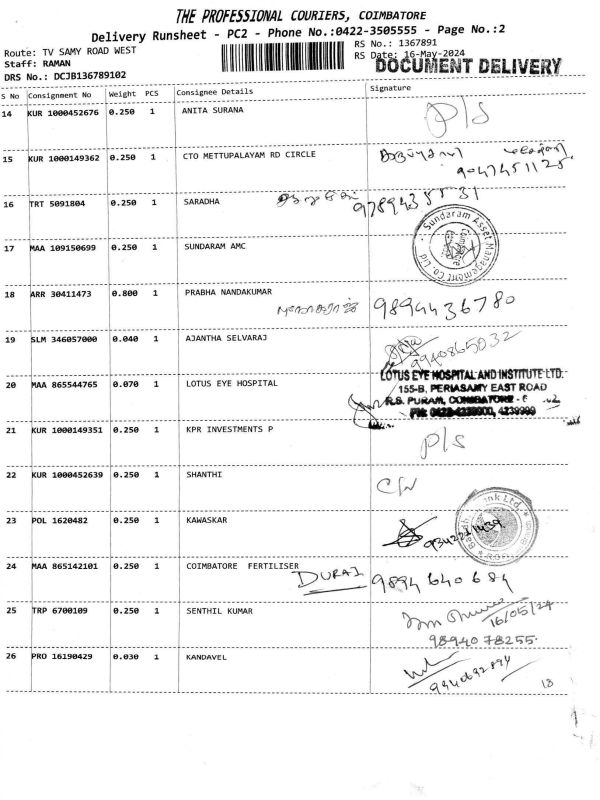 THE PROFESSIONAL COURIERS, COIMBATORE
Delivery Runsheet - PC2 - Phone No.:0422-3505555 - Page No.:2
Route: TV SAMY ROAD WEST
RS No.: 1367891
Staff: RAMAN
RS Date: 16-May-2024
DOCUMENT DELIVERY
DRS No.: DCJB136789102
S No Consignment No Weight PCS Consignee Details Signature
14 KUR 1000452676 0.250 1 ANITA SURANA P/S
15 KUR 1000149362 0.250 1 CTO METTUPALAYAM RD CIRCLE
9047451125
16 TRT 5091804 0.250 1 SARADHA
17 MAA 109150699 0.250 1 SUNDARAM AMC
Sundaram Asset Management Co Ltd
18 ARR 30411473 0.800 1 PRABHA NANDAKUMAR
9894436780
19 SLM 346057000 0.040 1 AJANTHA SELVARAJ
9940865032
20 MAA 865544765 0.070 1 LOTUS EYE HOSPITAL
LOTUS EYE HOSPITAL AND INSTITUTE LTD.
155-B, PERIASAMY EAST ROAD
R.S. PURAM, COIMBATORE -
PH: 0422-4239900, 4239999
21 KUR 1000149351 0.250 1 KPR INVESTMENTS P P/S
22 KUR 1000452639 0.250 1 SHANTHI
23 POL 1620482 0.250 1 KAWASKAR
24 MAA 865142101 0.250 1 COIMBATORE FERTILISER
DURAI 9894640684
25 TRP 6700109 0.250 1 SENTHIL KUMAR
16/05/24
9894078255
26 PRO 16190429 0.030 1 KANDAVEL
18